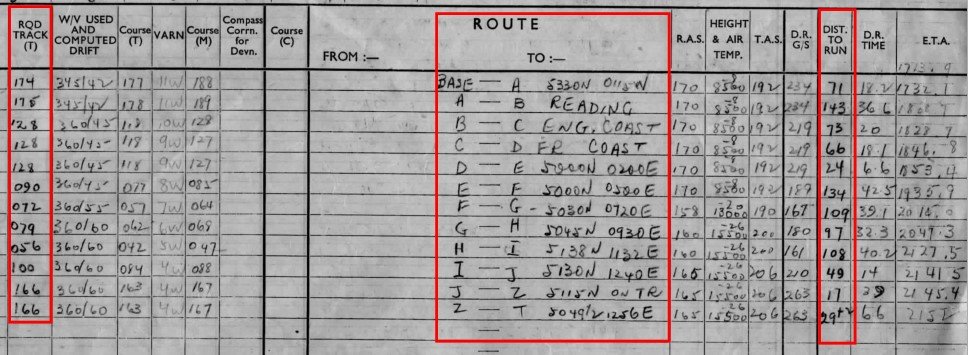 RQD TRACK (T) W/V USED AND COMPUTED DRIFT Course (T) VARN Course (M) Compass Corrn. for Devn. Course (C) ROUTE FROM :— TO :— R.A.S. HEIGHT & AIR TEMP. T.A.S. D.R. G/S DIST. TO RUN D.R. TIME E.T.A.
1713.9
174 345/42 177 11W 188 BASE — A 5330N 0115W 170 -8 8500 192 234 71 18.2 1732.1
175 345/42 178 11W 189 A — B READING 170 -8 8500 192 234 143 36.6
128 360/45 118 10W 128 B — C ENG. COAST 170 -8 8500 192 219 73 20 1828.7
128 360/45 118 9W 127 C — D FR COAST 170 -8 8500 192 219 66 18.1 1846.8
128 360/45 118 9W 127 D — E 5000N 0200E 170 -8 8500 192 219 24 6.6 1853.4
090 360/45 077 8W 085 E — F 5000N 0500E 170 -8 8500 192 189 134 42.5 1935.9
072 360/55 057 7W 064 F — G - 5030N 0720E 158 -20 13000 190 167 109 39.1 2015.0
079 360/60 062 6W 068 G — H 5045N 0930E 160 -26 15500 200 180 97 32.3 2047.3
056 360/60 042 5W 047 H — I 5138N 1132E 160 -26 15500 200 161 108 40.2 2127.5
100 360/60 084 4W 088 I — J 5130N 1240E 165 -26 15500 206 210 49 14 2141.5
166 360/60 163 4W 167 J — Z 5115N ON TR 165 -26 15500 206 263 17 39 2145.4
166 360/60 163 4W 167 Z — T 5049½ 1256E 165 -26 15500 206 263 29+2 6.6